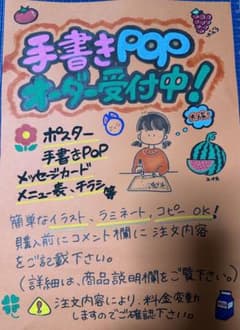 手書きPOP
オーダー受付中!
ポスター
手書きPOP
メッセージカード
メニュー表、チラシ
簡単なイラスト、ラミネート、コピーOK!
購入前にコメント欄に注文内容
をご記載下さい。
(詳細は、商品説明欄をご覧下さい。)
注文内容により、料金変動
しますのでご確認下さい。